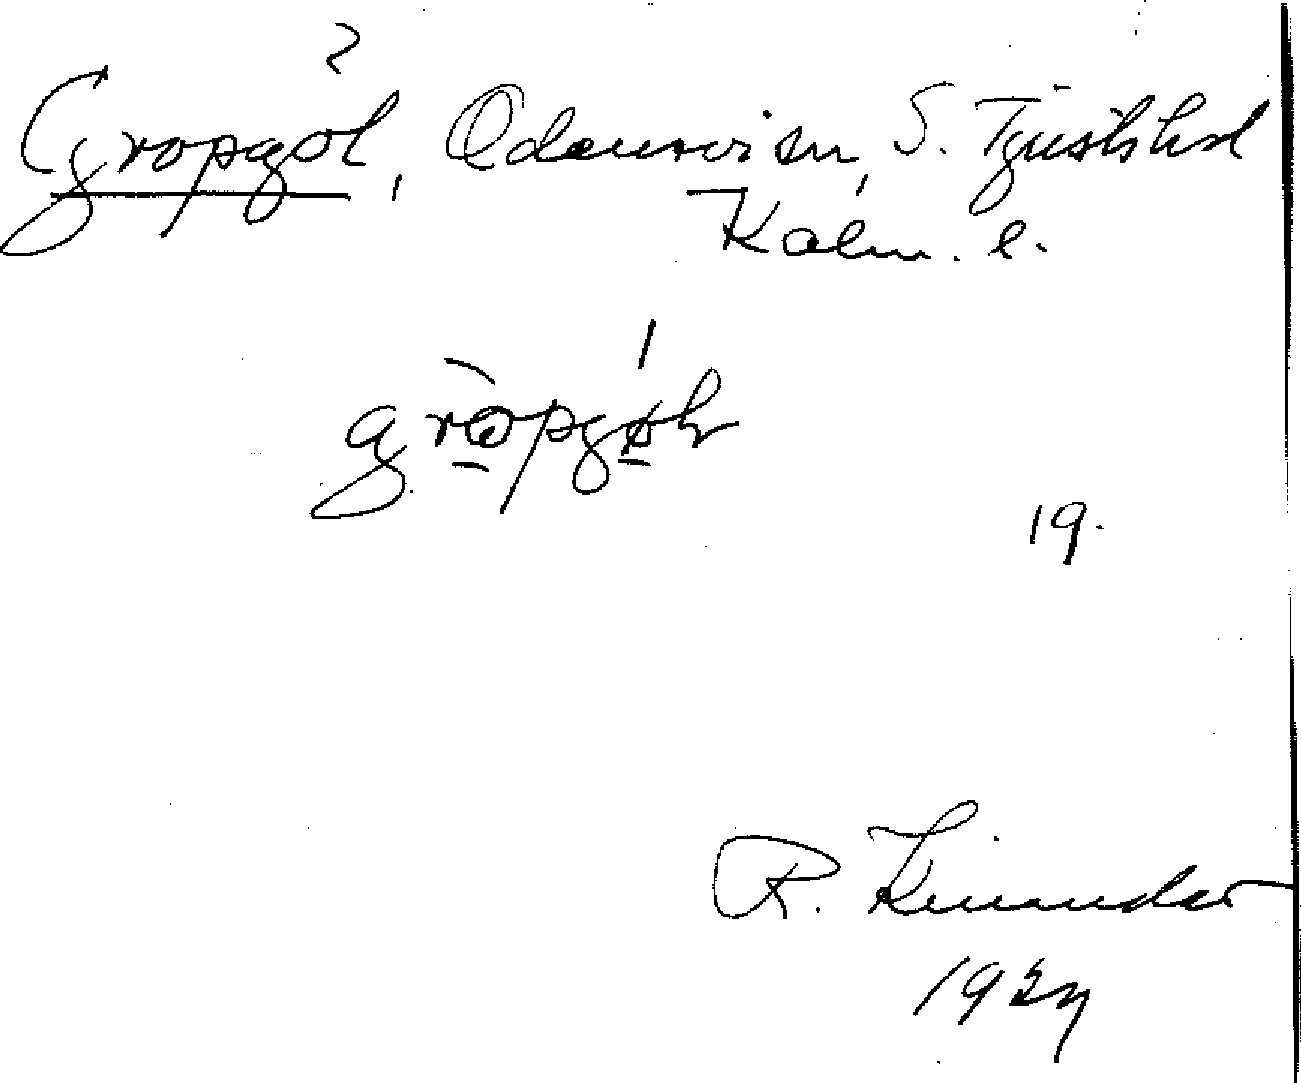 Gropgöl, Odensvi sn, S. Tjusts hd
Kalm. l.
19.
R. Linander
1927